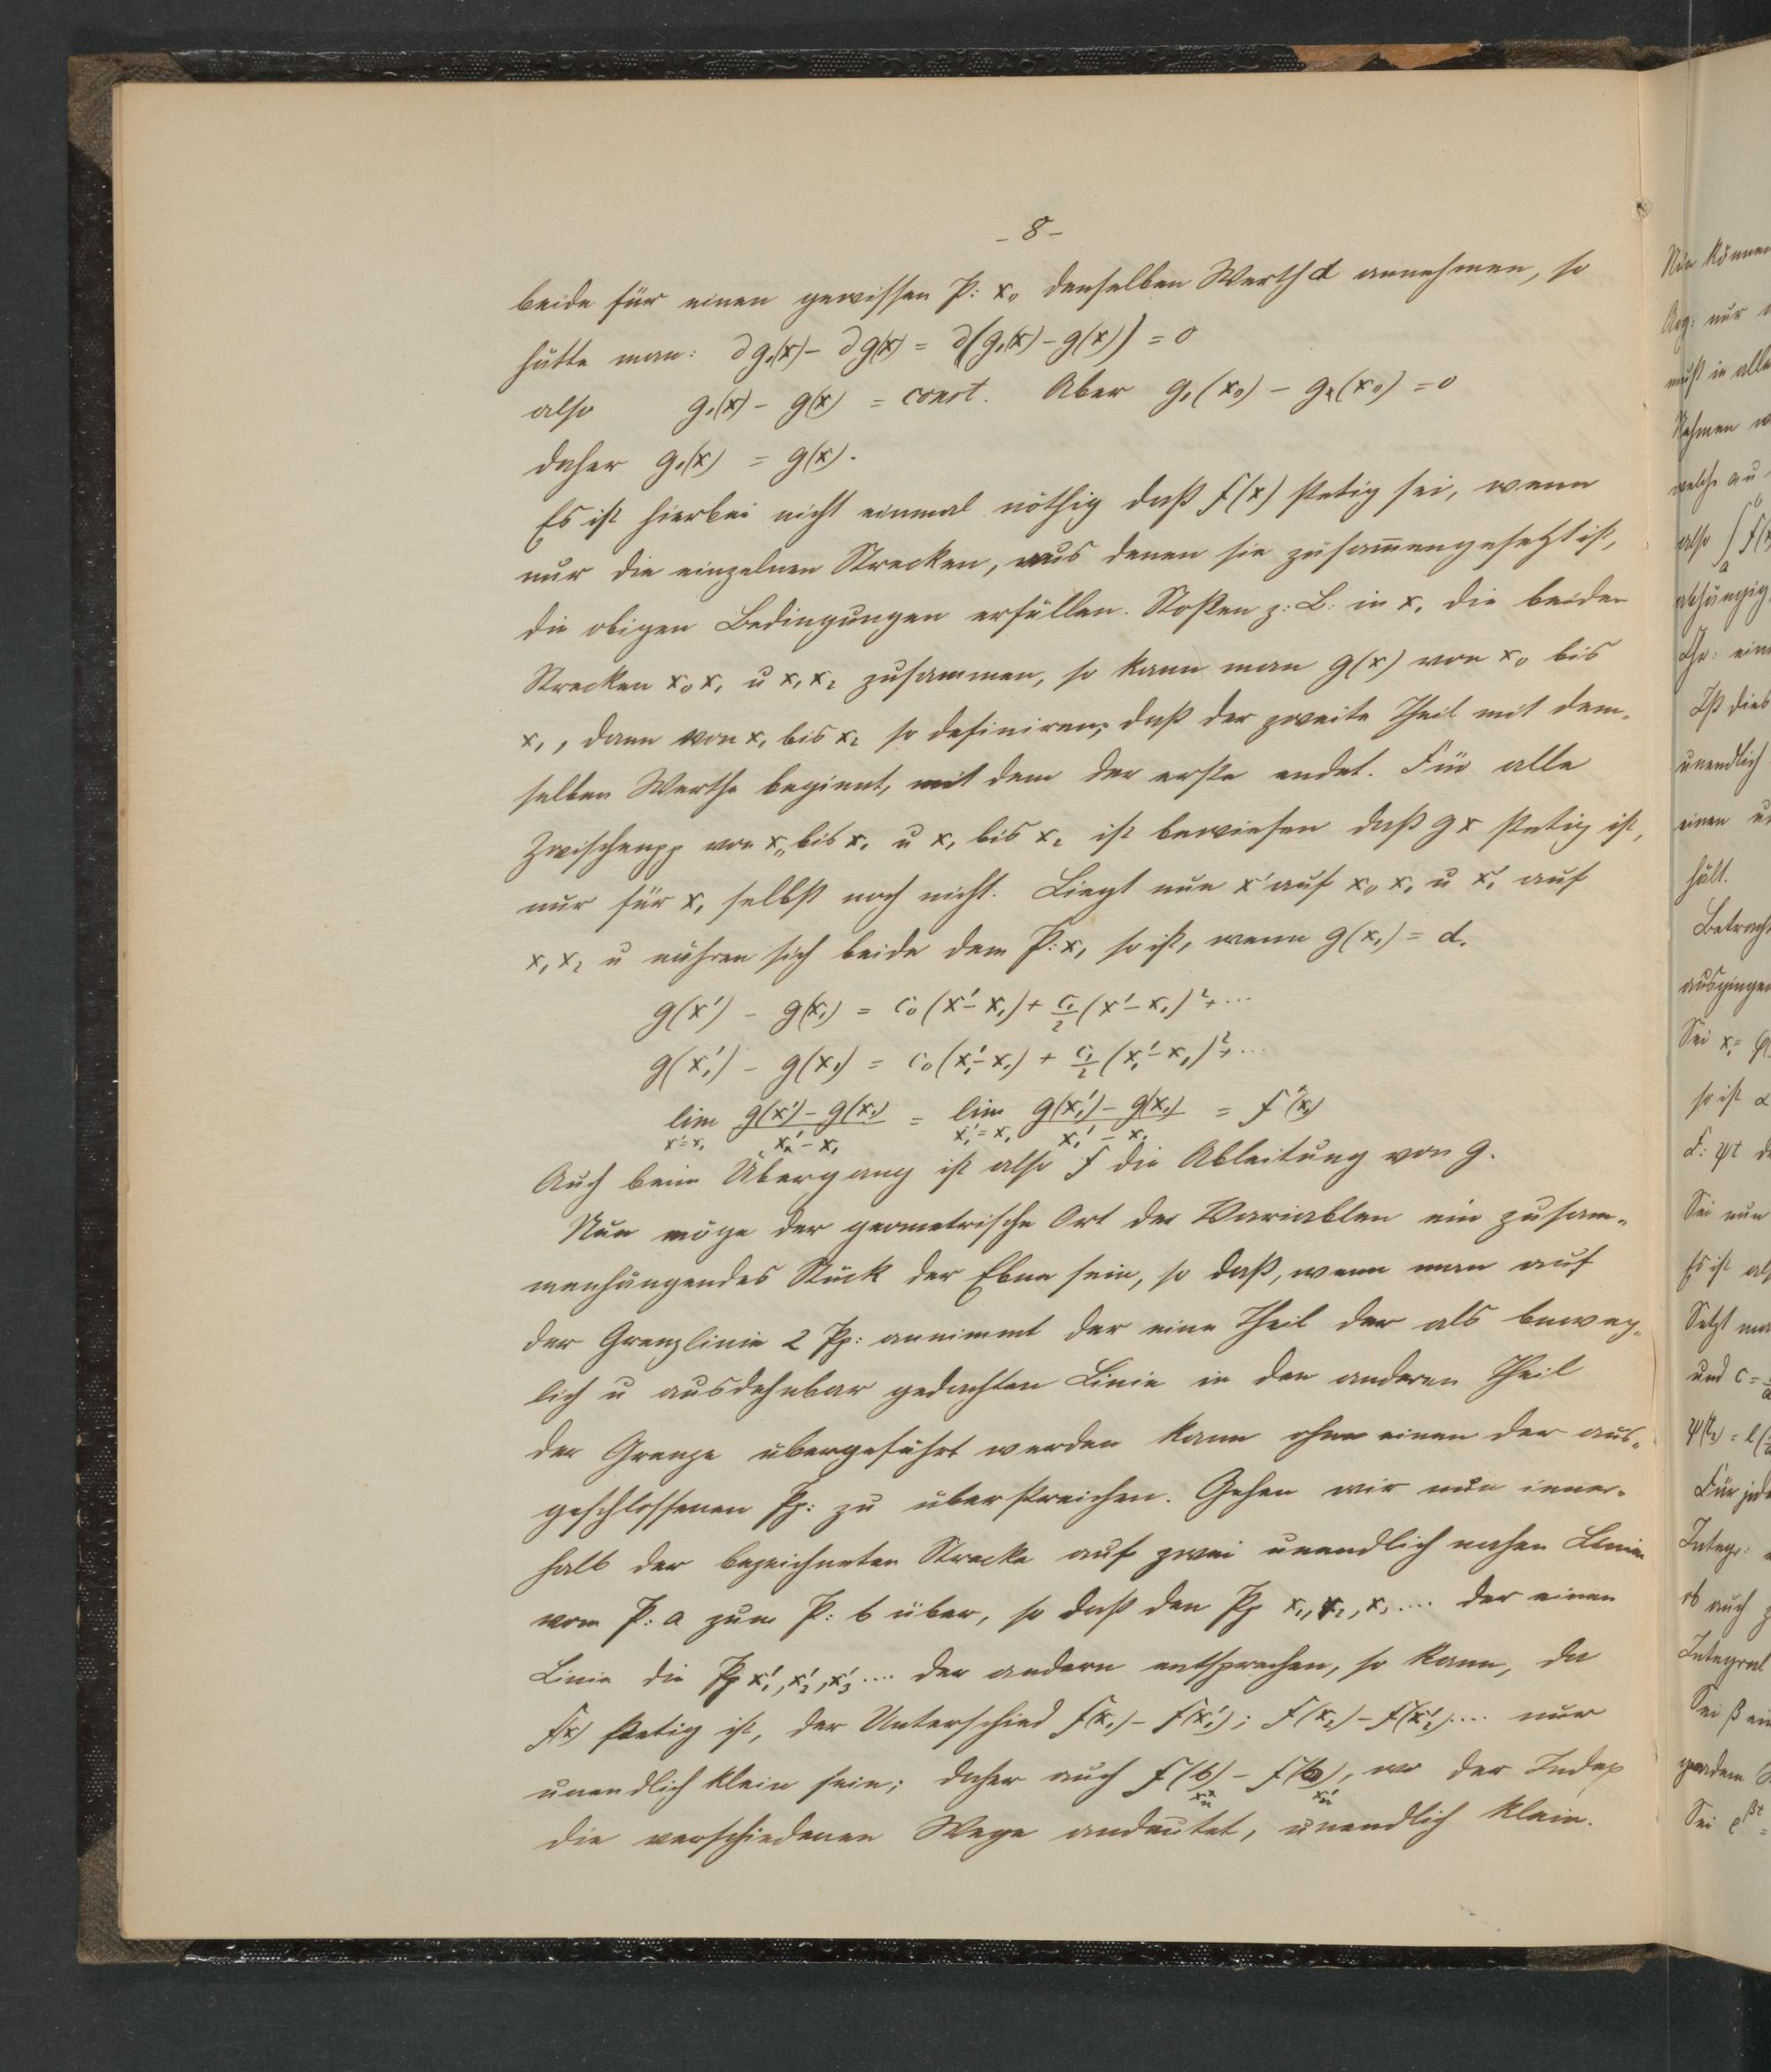 - 8 -
beide für einen gewissen P: x₀ denselben Werth d annehmen, so
hätte man: ∂g₁(x) - ∂g(x) = ∂(g₁(x) - g(x)) = 0
also g₁(x) - g(x) = const. Aber g₁(x₀) - g(x₀) = 0
daher g₁(x) = g(x).
Es ist hierbei nicht einmal nöthig daß f(x) stetig sei, wenn
nur die einzelnen Strecken, aus denen sie zusam̄engesetzt ist,
die obigen Bedingungen erfüllen. Stoßen z: B: in x₁ die beiden
Strecken x₀x₁ u x₁x₂ zusammen, so kann man g(x) von x₀ bis
x₁, dann von x₁ bis x₂ so definiren, daß der zweite Theil mit dem-
selben Werthe beginnt, mit dem der erste endet. Für alle
Zwischenpp von x₀ bis x₁ u x₁ bis x₂ ist bewiesen daß gx stetig ist,
nur für x₁ selbst noch nicht. Liegt nun x' auf x₀x₁ u x₁' auf
x₁x₂ u nähren sich beide dem P: x₁ so ist, wenn g(x₁) = d.
g(x') - g(x₁) = c₀(x' - x₁) + c₁/2 (x' - x₁)² + ...
g(x₁') - g(x₁) = c₀(x₁' - x₁) + c₁/2 (x₁' - x₁)² + ...
lim x'=x₁ g(x') - g(x₁) / x' - x₁ = lim x₁'=x₁ g(x₁') - g(x₁) / x₁' - x₁ = f(x₁)
Auch beim Übergang ist also f die Ableitung von g.
Nun möge der geometrische Ort der Variablen ein zusam-
menhängendes Stück der Ebne sein, so daß, wenn man auf
der Grenzlinie 2 Pp: annimmt der eine Theil der als beweg-
lich u ausdehnbar gedachten Linie in den anderen Theil
der Grenze übergeführt werden kann ohne einen der aus-
geschlossenen Pp: zu überstreichen. Gehen wir nun inner-
halb der bezeichneten Strecke auf zwei unendlich nahen Linien
vom P: a zum P: b über, so daß den Pp x₁, x₂, x₃ .... der einen
Linie die Pp x₁', x₂', x₃' .... der andern entsprechen, so kann, da
f(x) stetig ist, der Unterschied f(x₁) - f(x₁'); f(x₂) - f(x₂') .... nur
unendlich klein sein; daher auch f(b) - f(b), wo der Index
die verschiedenen Wege andeutet, unendlich klein.